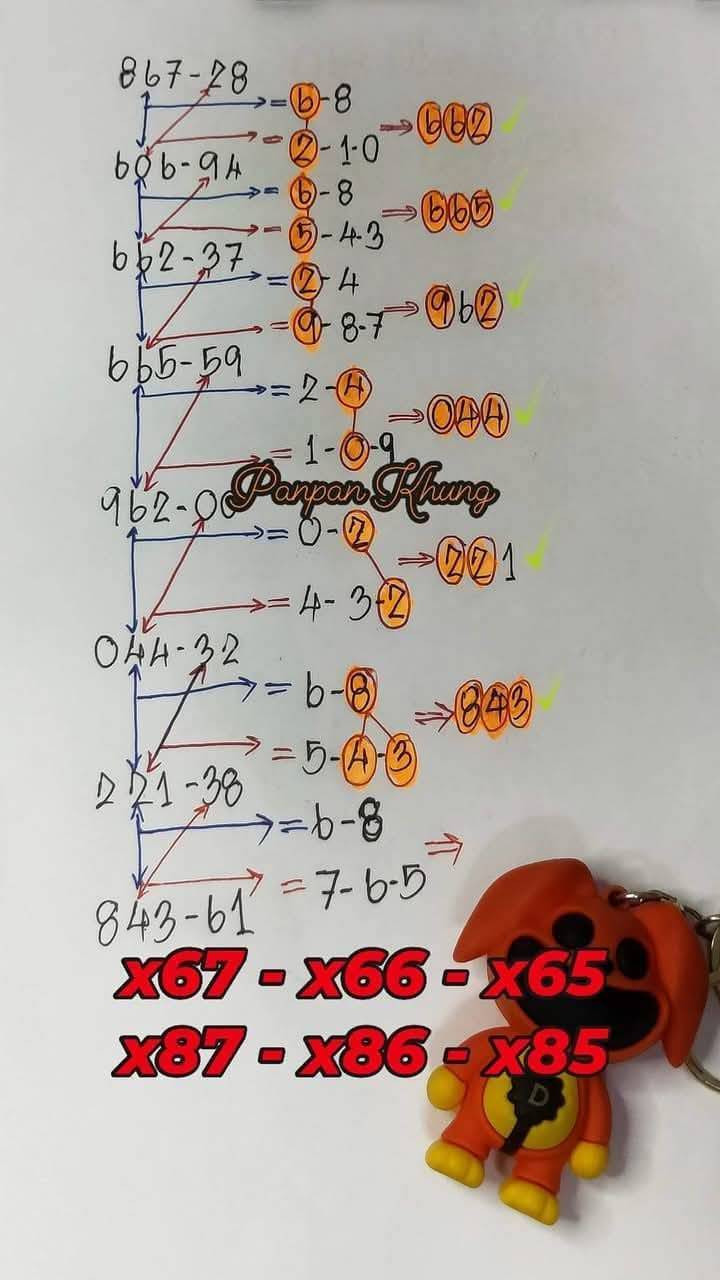 867-28
= 6-8
= 2-1-0 ⇒ 662 ✓
606-94
= 6-8
= 5-4-3 ⇒ 665 ✓
662-37
= 2-4
= 9-8-7 ⇒ 962 ✓
665-59
= 2-4
= 1-0-9 ⇒ 044 ✓
Panpan Khung
962-00
= 0-2
= 4-3-2 ⇒ 221 ✓
044-32
= 6-8
= 5-4-3 ⇒ 843 ✓
221-38
= 6-8
= 7-6-5 ⇒
843-61
x67 - x66 - x65
x87 - x86 - x85
D